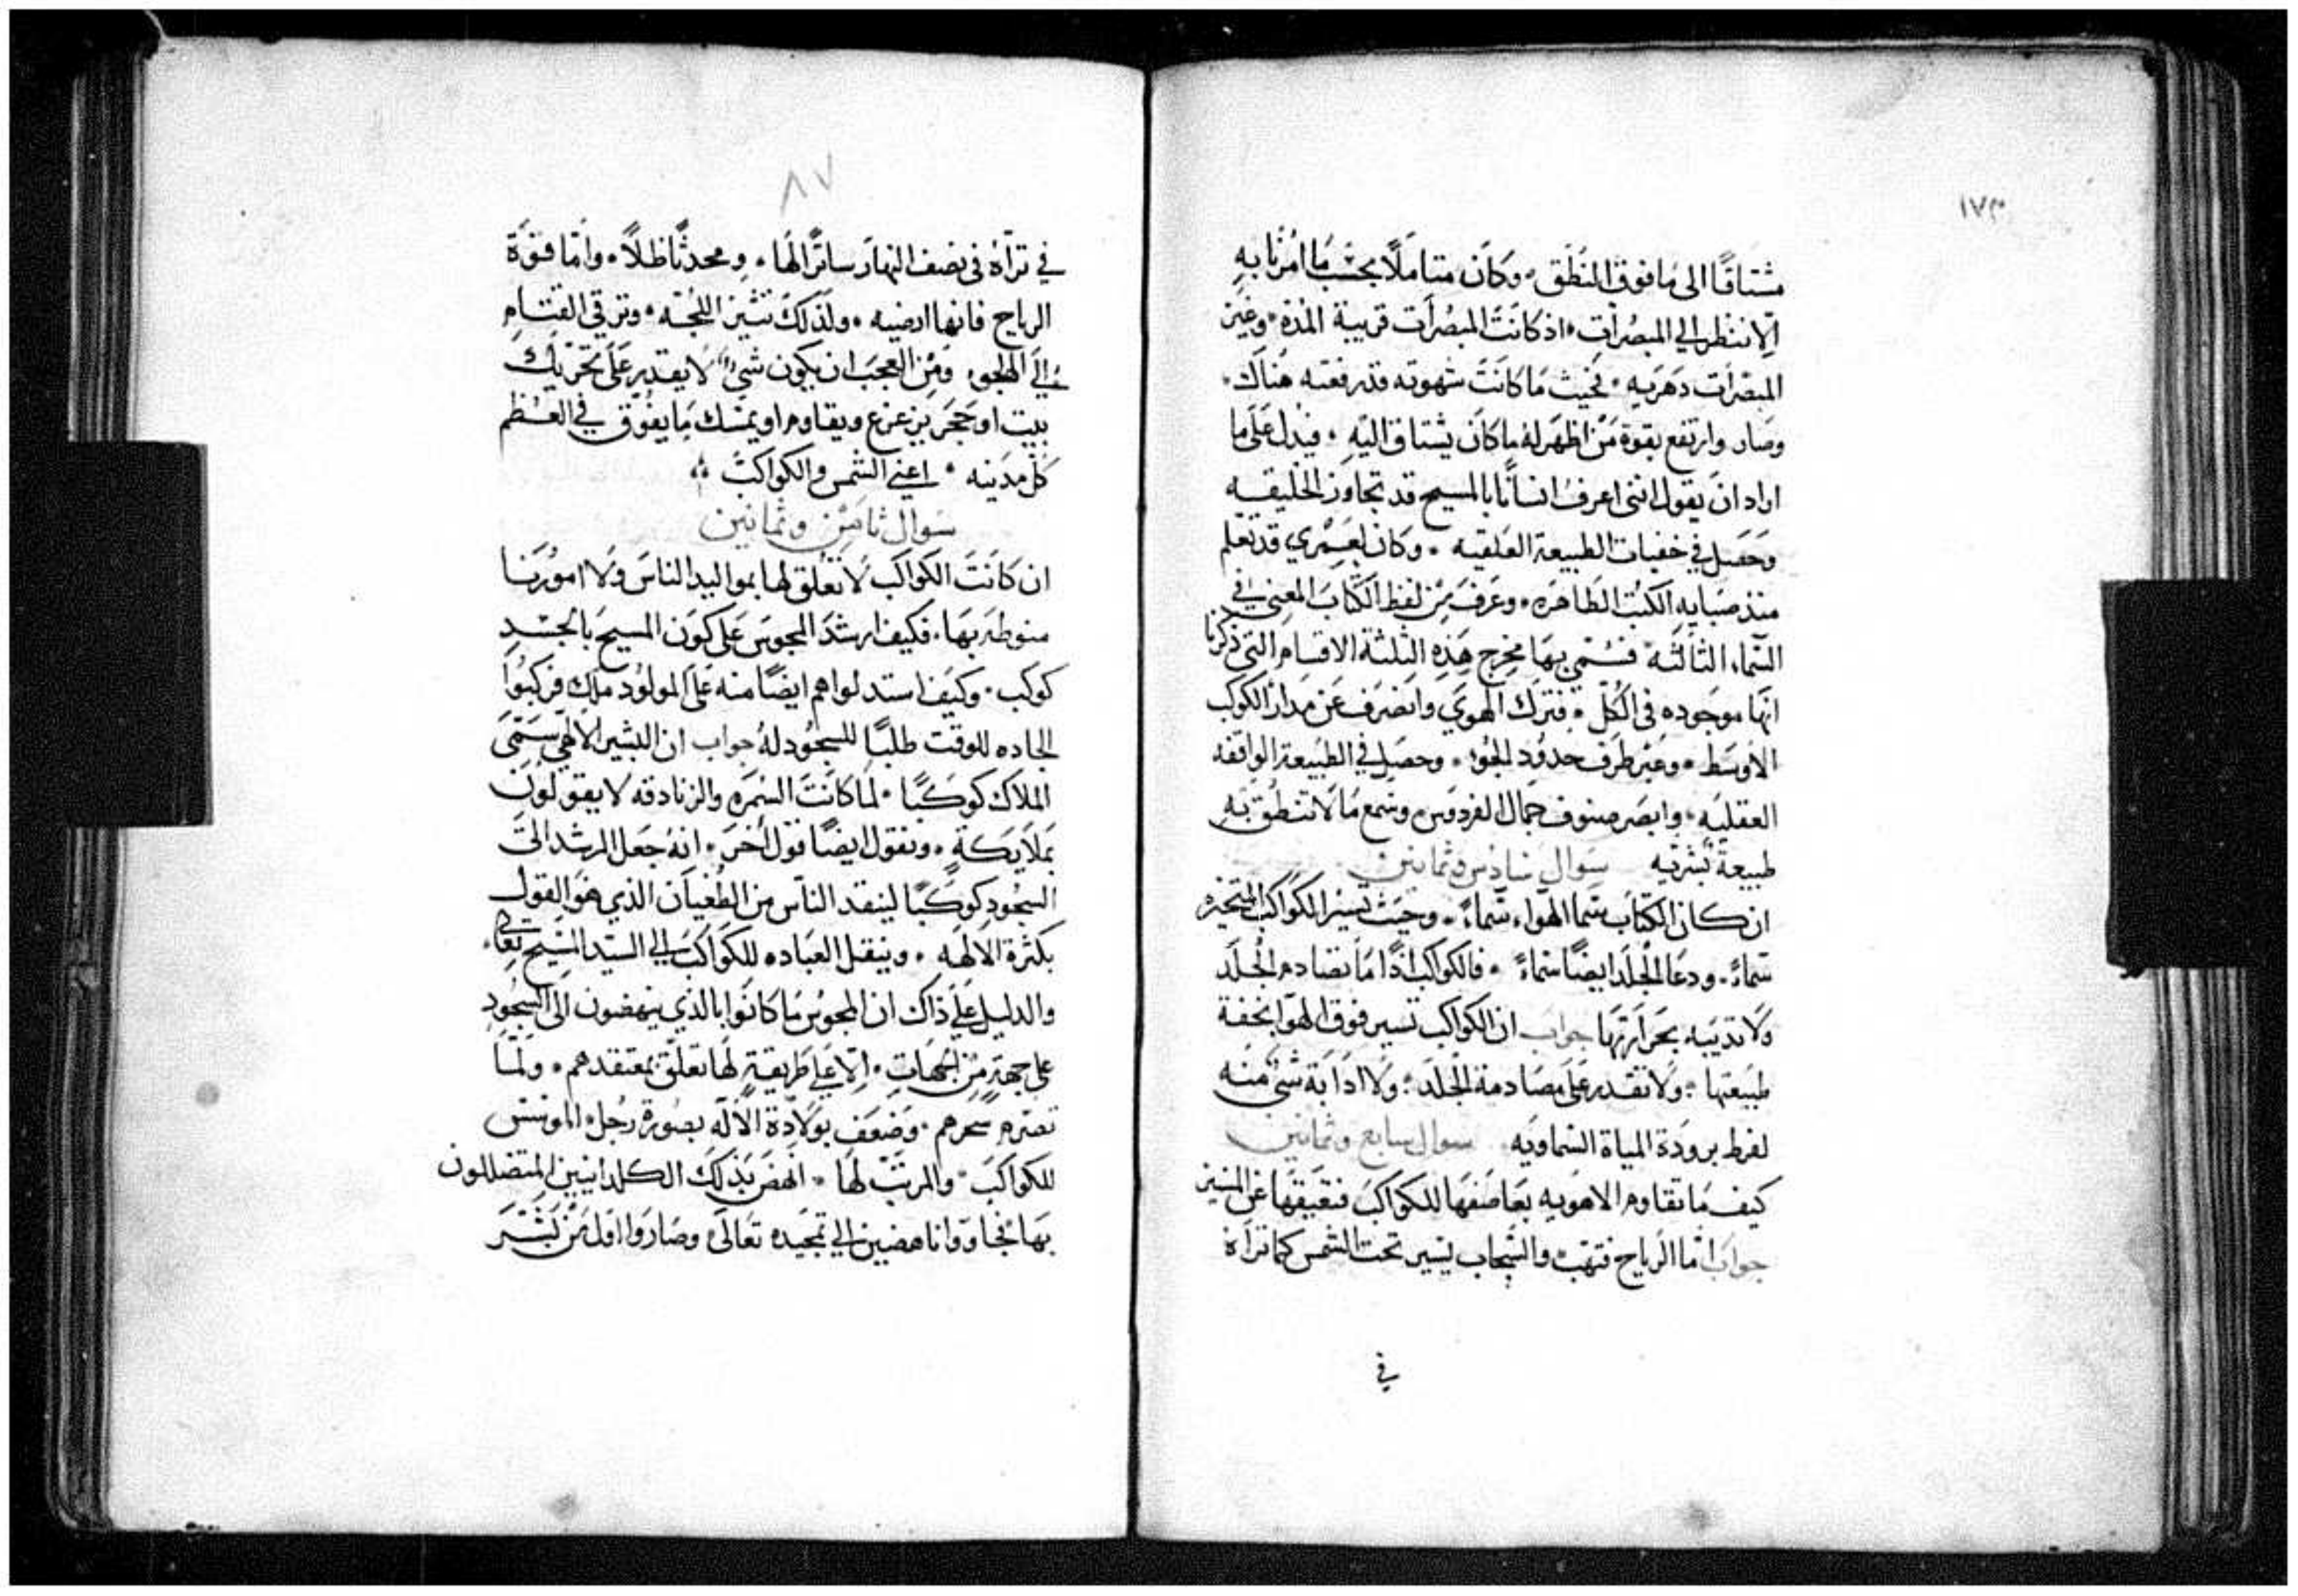 ١٧٣
مشتاقًا الى ما فوق المنطق. وكان متاملًا بحسب ما امرنا به
الا ننظر الي المبصرات. اذ كانت المبصرات قريبة المدة. وغير
المبصرات دهريه. فحيث ما كانت شهوته قد رفعته هناك.
وصار وارتفع بقوة من اظهر له ما كان يشتاق اليه. فيدل على ما
اراد ان يقول انني اعرف انسانًا بالمسيح قد تجاوز الخليقيه
وحصل في خفيات الطبيعة العقليه. وكان لعمري قد تعلم
منذ صبايه الكتب الطاهره. وعرف من لفظ الكتاب المعنى في
السماء الثالثة فسمى بها مخرج هذه الثلثة الاقسام التي ذكرنا
انها موجوده في الكل. فترك الهوي وانصرف عن مدار الكوكب
الاوسط. وعبر طرف حدود الجو. وحصل في الطبيعة الواقفه
العقليه. وابصر صنوف جمال الفردوس وسمع ما لا تنطق به
طبيعة بشريه سوال سادس وثمانين
ان كان الكتاب سما الهواء سماءً. وحيث تسير الكواكب المتحيره
سماءً. ودعا الجلد ايضًا سماءً. فالكواكب اذًا ما تصادم الجلد
ولا تذيبه بحرارتها جواب ان الكواكب تسير فوق الهوا بخفة
طبيعتها. ولا تقدر على مصادمة الجلد. ولا اذابة شي منه
لفرط برودة المياة السماويه. سوال سابع وثمانين
كيف ما تقاوم الاهويه بعاصفها للكواكب فتعيقها عن المسير
جواب اما الرياح فتهب والسحاب يسير تحت الشمس كما تراه
في
٨٧
في تراه في نصف النهار ساترًا لها. ومحدثًا ظلًا. واما قوة
الرياح فانها ارضيه. ولذلك تثير اللجه. وترقي القتام
الى الجو. ومن العجب ان يكون شيءٌ لا يقدر على تحريك
بيت او حجر يزعزع ويقاوم او يمسك ما يفوق في العظم
كل مدينه. اعني الشمس والكواكب
سوال ثامن وثمانين
ان كانت الكواكب لا تعلق لها بمواليد الناس ولا امورنا
منوطه بها. فكيف ارشد المجوس على كون المسيح بالجسد
كوكب. وكيف استدلوا هم ايضًا منه على المولود ملك فركبوا
الجاده للوقت طلبًا للسجود له جواب ان البشير الالاهي سمى
الملاك كوكبًا. لما كانت السمره والزنادقه لا يقولون
بملايكة. ونقول ايضًا قول اخر. انه جعل المرشد الى
السجود كوكبًا لينقذ الناس من الطغيان الذي هو القول
بكثرة الالهه. وينقل العباده للكواكب الي السيد المسيح تعالى.
والدليل على ذاك ان المجوس ما كانوا بالذي ينهضون الى السجود
على جهةٍ من الجهات. الا على طريقةٍ لها تعلق بمعتقدهم. ولما
تصرم سحرهم. وضعف بولادة الاله بصورة رجل الموسس
للكواكب. والمرتب لها. انهض بذلك الكلدانيين المتضللون
بها فجاووا ناهضين الي تمجيده تعالى وصاروا اول من بشر